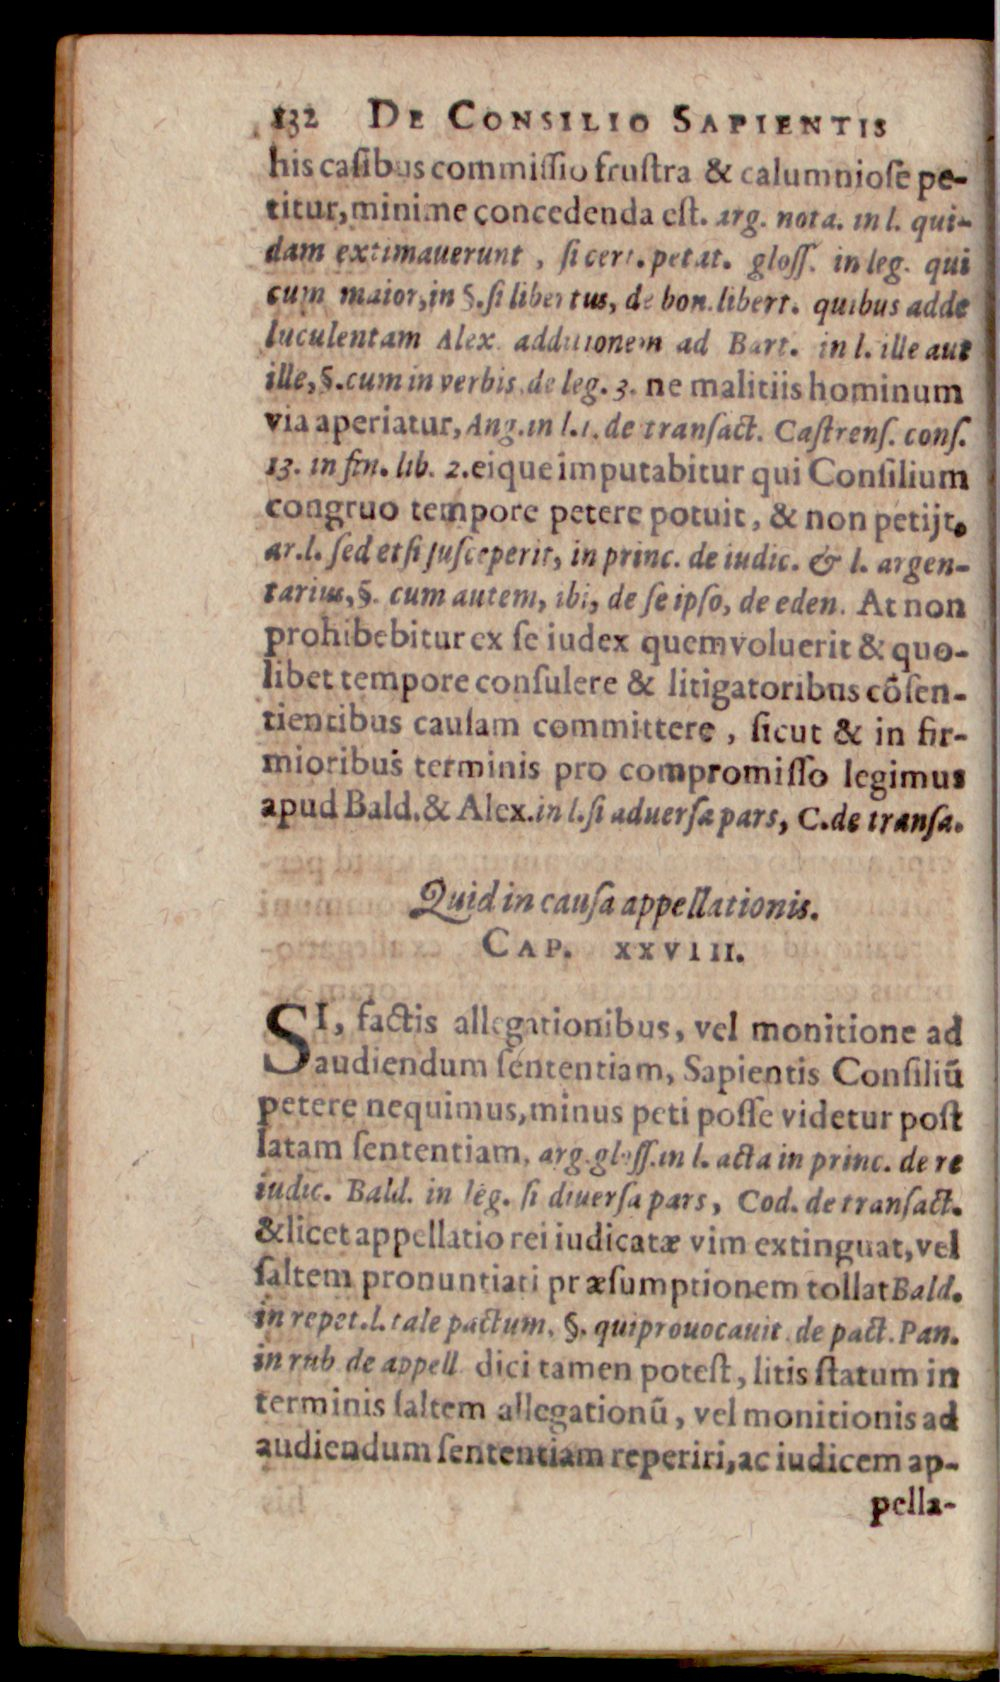 132 DE CONSILIO SAPIENTIS
his casibus commissio frustra & calumniose pe-
titur, minime concedenda est. arg. nota. in l. qui-
dam extimauerunt, si cert. petat. gloss. in leg. qui
cum maior, in §. si libertus, de bon. libert. quibus adde
luculentam Alex. additionem ad Bart. in l. ille aut
ille, §. cum in verbis. de leg. 3. ne malitiis hominum
via aperiatur, Ang. in l. 1. de transact. Castrens. cons.
13. in fin. lib. 2. eique imputabitur qui Consilium
congruo tempore petere potuit, & non petijt.
ar. l. sed et si susceperit, in princ. de iudic. & l. argen-
tarius, §. cum autem, ibi, de se ipso, de eden. At non
prohibebitur ex se iudex quem voluerit & quo-
libet tempore consulere & litigatoribus cōsen-
tientibus causam committere, sicut & in fir-
mioribus terminis pro compromisso legimus
apud Bald. & Alex. in l. si aduersa pars, C. de transa.
Quid in causa appellationis.
CAP. XXVIII.
SI, factis allegationibus, vel monitione ad
audiendum sententiam, Sapientis Consiliū
petere nequimus, minus peti posse videtur post
latam sententiam. arg. gloss. in l. acta in princ. de re
iudic. Bald. in leg. si diuersa pars, Cod. de transact.
& licet appellatio rei iudicatæ vim extinguat, vel
saltem pronuntiati præsumptionem tollat Bald.
in repet. l. tale pactum. §. qui prouocauit. de pact. Pan.
in rub. de appell. dici tamen potest, litis statum in
terminis saltem allegationū, vel monitionis ad
audiendum sententiam reperiri, ac iudicem ap-
pella-